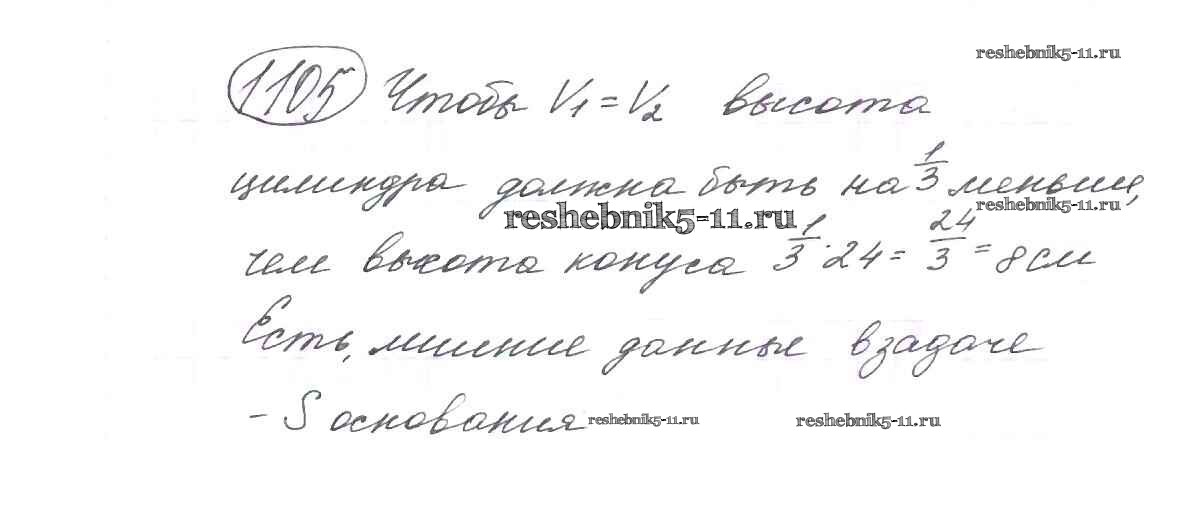 reshebnik5-11.ru
1105 Чтобы V₁ = V₂ высота
цилиндра должна быть на 1/3 меньше,
reshebnik5-11.ru
reshebnik5-11.ru
чем высота конуса 1/3 · 24 = 24/3 = 8 см
Есть, лишние данные в задаче
- S основания
reshebnik5-11.ru
reshebnik5-11.ru